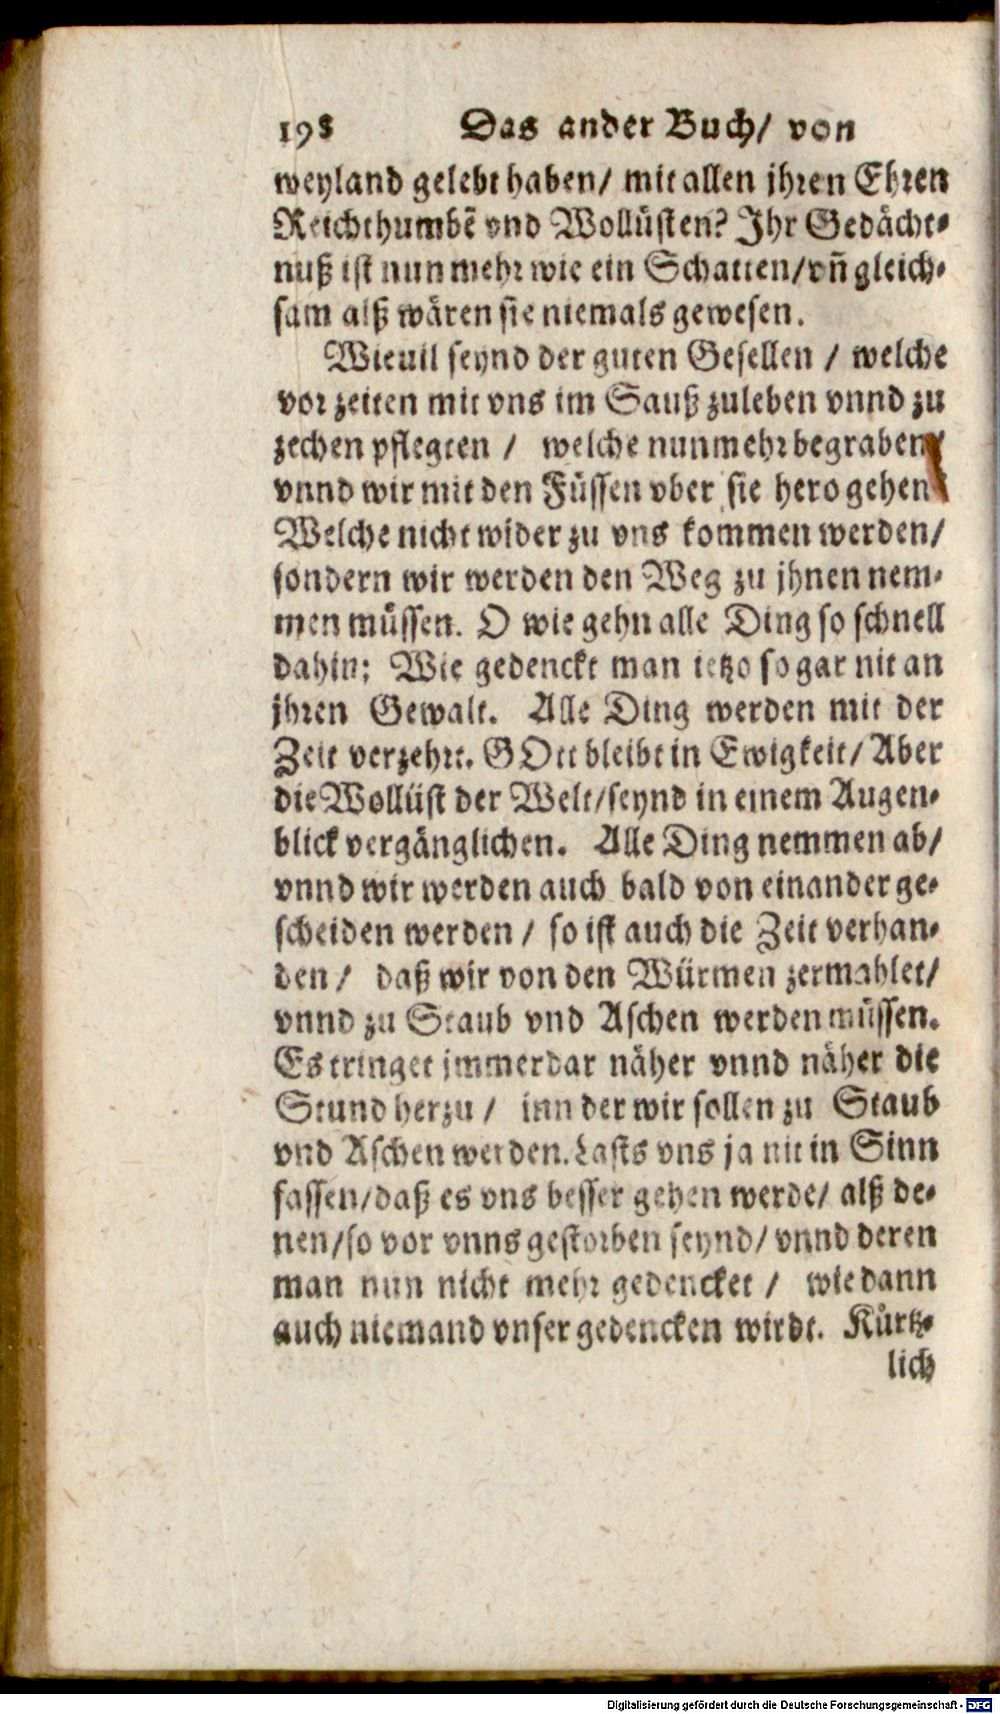 198 Das ander Buch/ von
weyland gelebt haben/ mit allen jhren Ehren
Reichthumbē vnd Wollüsten? Ihr Gedächt-
nuß ist nunmehr wie ein Schatten/vñ gleich-
sam alß wären sie niemals gewesen.
Wieuil seynd der guten Gesellen / welche
vor zeiten mit vns im Sauß zuleben vnnd zu
zechen pflegten / welche nunmehr begraben
vnnd wir mit den Füssen vber sie hero gehen
Welche nicht wider zu vns kommen werden/
sondern wir werden den Weg zu jhnen nem-
men müssen. O wie gehn alle Ding so schnell
dahin: Wie gedenckt man ietzo so gar nit an
jhren Gewalt. Alle Ding werden mit der
Zeit verzehrt. GOtt bleibt in Ewigkeit/ Aber
die Wollüst der Welt/seynd in einem Augen-
blick vergänglichen. Alle Ding nemmen ab/
vnnd wir werden auch bald von einander ge-
scheiden werden / so ist auch die Zeit verhan-
den / daß wir von den Würmen zermahlet/
vnnd zu Staub vnd Aschen werden müssen.
Es tringet jmmerdar näher vnnd näher die
Stund herzu / inn der wir sollen zu Staub
vnd Aschen werden. Lasts vns ja nit in Sinn
fassen/daß es vns besser gehen werde/ alß de-
nen/so vor vnns gestorben seynd/ vnnd deren
man nun nicht mehr gedencket / wie dann
auch niemand vnser gedencken wirdt. Kürtz-
lich
Digitalisierung gefördert durch die Deutsche Forschungsgemeinschaft - DFG